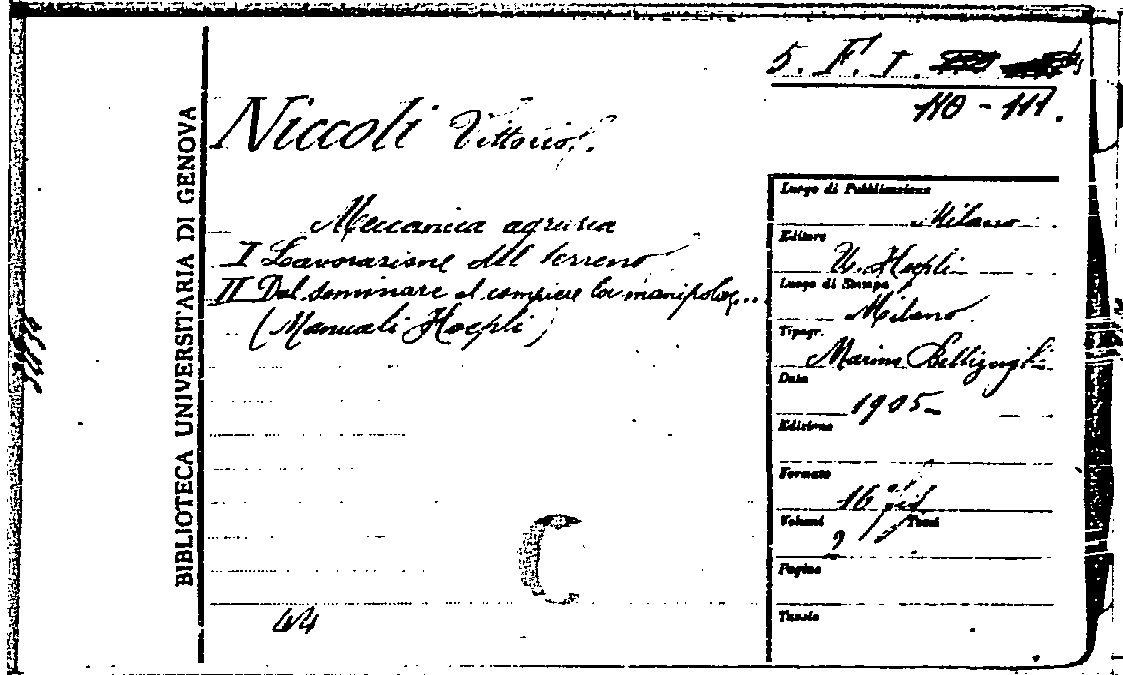 5. F. I.
110 - 111.
Niccoli Vittorio.
BIBLIOTECA UNIVERSITARIA DI GENOVA
Meccanica agraria
I Lavorazione del terreno
II Dal seminare al compiere la manipolaz...
(Manuali Hoepli)
44
C
Luogo di Pubblicazione
Milano
Editore
U. Hoepli
Luogo di Stampa
Milano
Tipogr.
Data
1905
Edizione
Formato
16°
Volumi Tomi
2
Pagine
Tavole